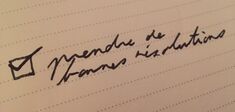 prendre de
bonnes résolutions